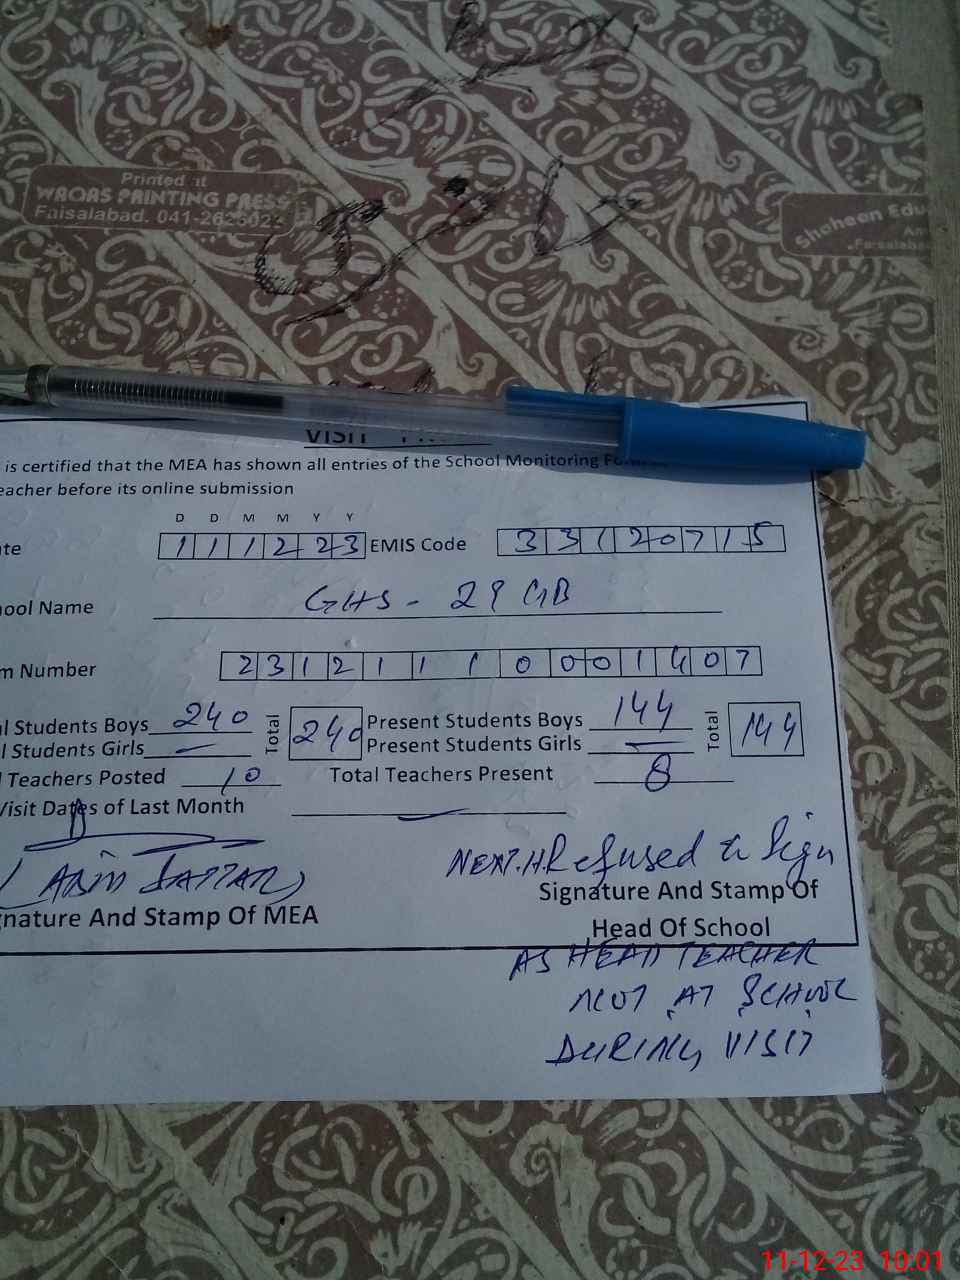 Printed at
WAQAS PRINTING PRESS
Faisalabad. 041-2623024
Shaheen Edu
Faisalabad
حاضری
VISIT
is certified that the MEA has shown all entries of the School Monitoring
eacher before its online submission
D D M M Y Y
te 1 1 1 2 2 3 EMIS Code 3 3 1 2 0 7 1 5
hool Name GHS - 29 GB
m Number 2 3 1 2 1 1 1 0 0 0 1 4 0 7
l Students Boys 240 Total 240 Present Students Boys 144 Total 144
l Students Girls — Present Students Girls —
Teachers Posted 10 Total Teachers Present 8
Visit Dates of Last Month —
NEXT.H.Refused to Sign
(ABID SATTAR)
Signature And Stamp Of
gnature And Stamp Of MEA
Head Of School
AS HEAD TEACHER
NOT AT SCHOOL
DURING VISIT
11-12-23 10:01